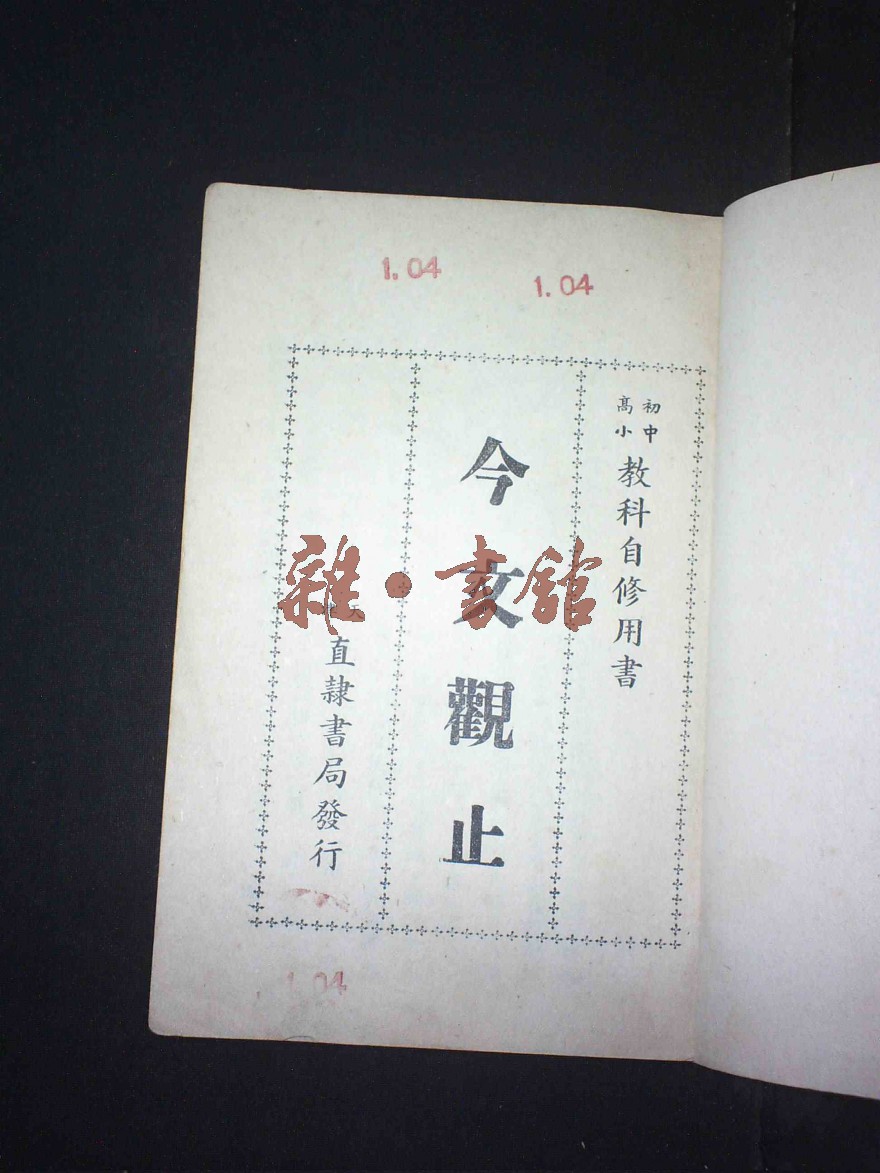 1.04
1.04
初中
高小
教科自修用書
今文觀止
天
直隸書局發行
1.04
雜·書舘